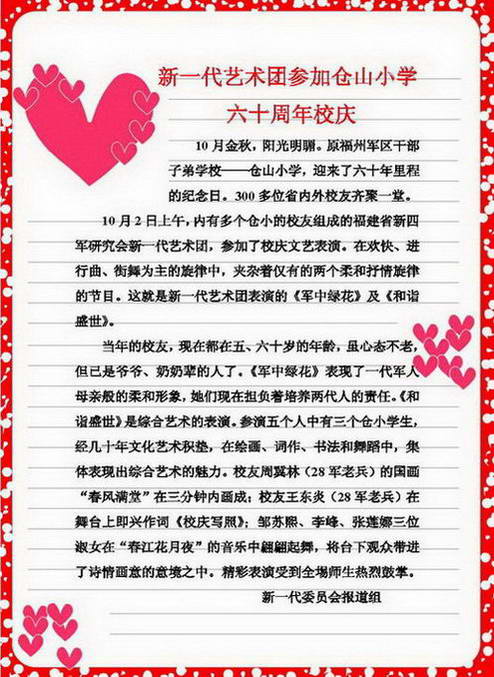 新一代艺术团参加仓山小学
六十周年校庆
10月金秋，阳光明骊。原福州军区干部
子弟学校——仓山小学，迎来了六十年里程
的纪念日。300多位省内外校友齐聚一堂。
10月2日上午，内有多个仓小的校友组成的福建省新四
军研究会新一代艺术团，参加了校庆文艺表演。在欢快、进
行曲、街舞为主的旋律中，夹杂着仅有的两个柔和抒情旋律
的节目。这就是新一代艺术团表演的《军中绿花》及《和谐
盛世》。
当年的校友，现在都在五、六十岁的年龄，虽心态不老，
但已是爷爷、奶奶辈的人了。《军中绿花》表现了一代军人
母亲般的柔和形象，她们现在担负着培养两代人的责任。《和
谐盛世》是综合艺术的表演。参演五个人中有三个仓小学生，
经几十年文化艺术积垫，在绘画、词作、书法和舞蹈中，集
体表现出综合艺术的魅力。校友周冀林（28军老兵）的国画
“春风满堂”在三分钟内画成；校友王东炎（28军老兵）在
舞台上即兴作词《校庆写照》；邹苏熙、李峰、张莲娜三位
淑女在“春江花月夜”的音乐中翩翩起舞，将台下观众带进
了诗情画意的意境之中。精彩表演受到全场师生热烈鼓掌。
新一代委员会报道组